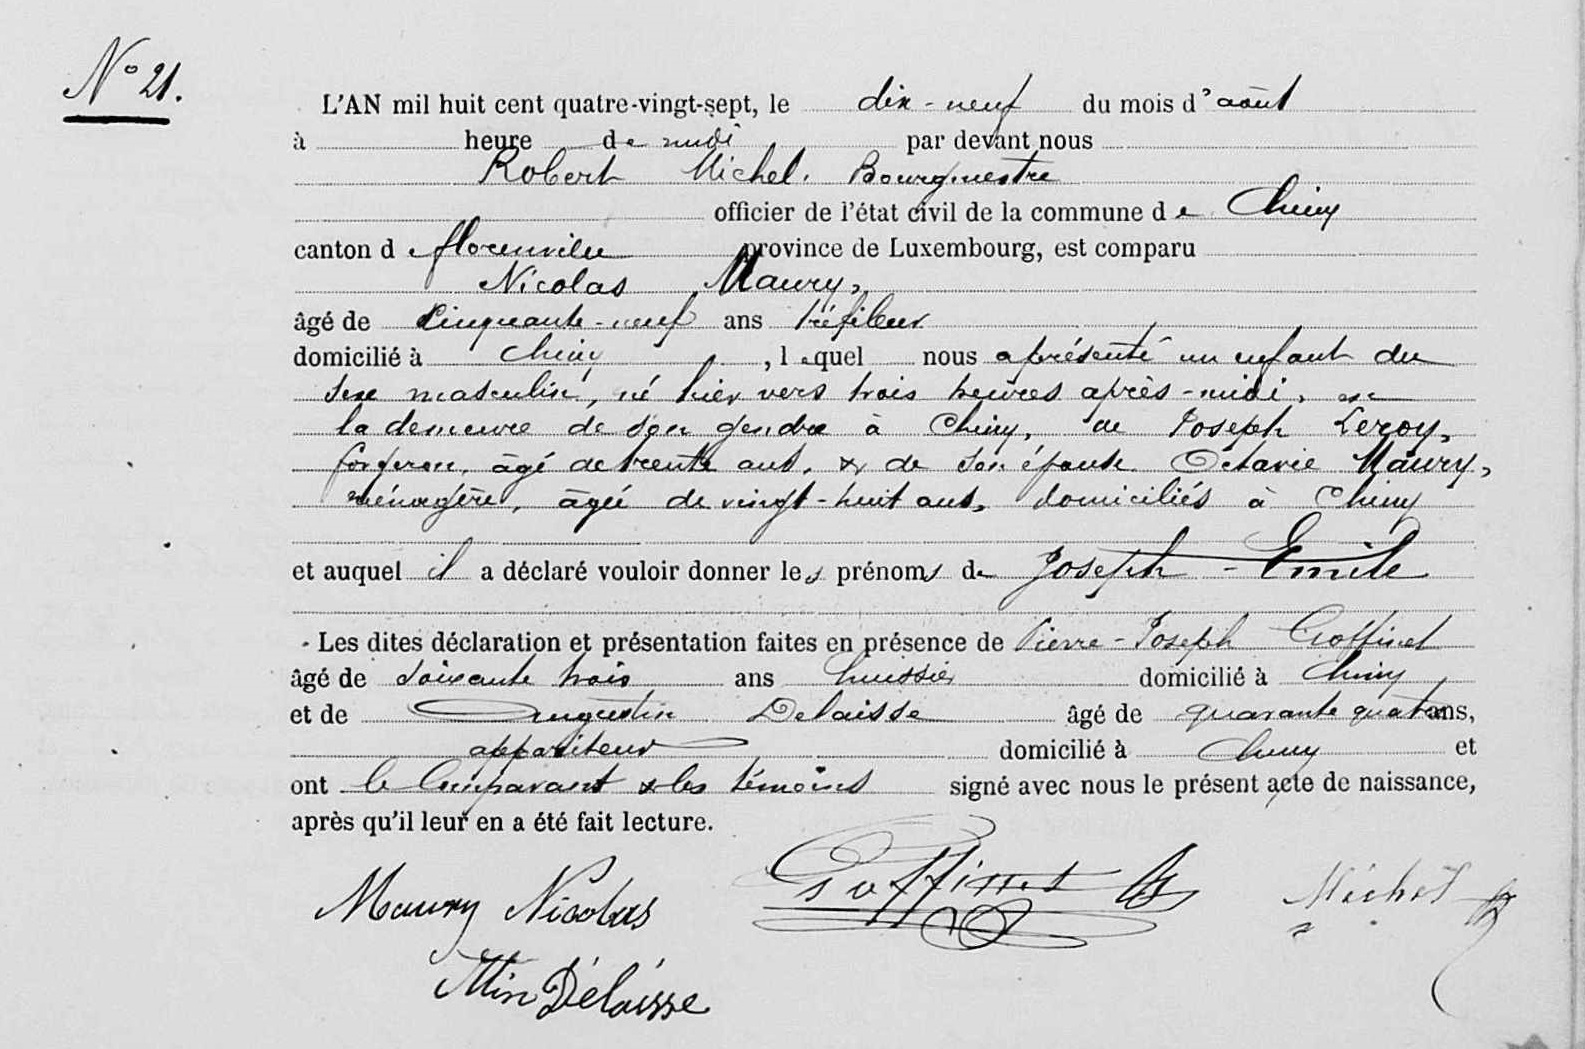 N° 21.
L'AN mil huit cent quatre-vingt-sept, le dix-neuf du mois d'août
à heure de midi par devant nous
Robert Michel. Bourgmestre
officier de l'état civil de la commune de Chiny
canton d florenville province de Luxembourg, est comparu
Nicolas Maury,
âgé de Cinquante-neuf ans tréfileur
domicilié à Chiny, lequel nous a présenté un enfant du
sexe masculin, né hier vers trois heures après-midi, en
la demeure de son gendre à Chiny, de Joseph Leroy,
forgeron, âgé de trente ans, & de son épouse Octavie Maury,
ménagère, âgée de vingt-huit ans, domiciliés à Chiny
et auquel il a déclaré vouloir donner les prénoms de Joseph-Emile
Les dites déclaration et présentation faites en présence de Pierre-Joseph Goffinet
âgé de soixante trois ans huissier domicilié à Chiny
et de Augustin Delaisse âgé de quarante quatre ans,
appariteur domicilié à Chiny et
ont le Comparant & les témoins signé avec nous le présent acte de naissance,
après qu'il leur en a été fait lecture.
Maury Nicolas Goffinet Michel R
Atin Délaisse